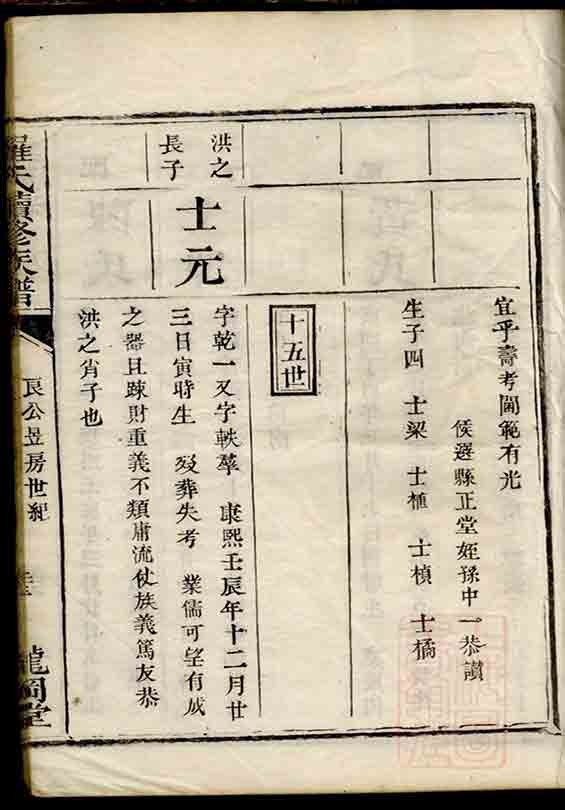 宜乎壽考閫範有光
候選縣正堂姪孫中一恭讚
生子四 士梁 士楨 士橘
十五世
洪之
長子
士元
字乾一又字軼羣 康熙壬辰年十二月廿
三日寅時生 歿葬失考 業儒可望有成
之器且踈財重義不類庸流仗族義篤友恭
洪之肖子也
羅氏續修族譜
良公昱房世紀
龍岡堂